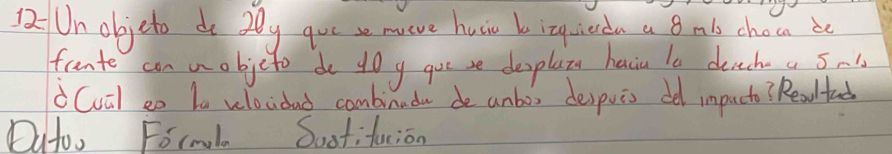 12- Un objeto de 20 y que se mueve hacia la izquierda a 8 m/s choca de
frente con un objeto de 10 y que se desplaza hacia la derecha a 5 m/s
¿Cuál es la velocidad combinada de ambos después del impacto? Resultado
Datos Fórmula Sustitución